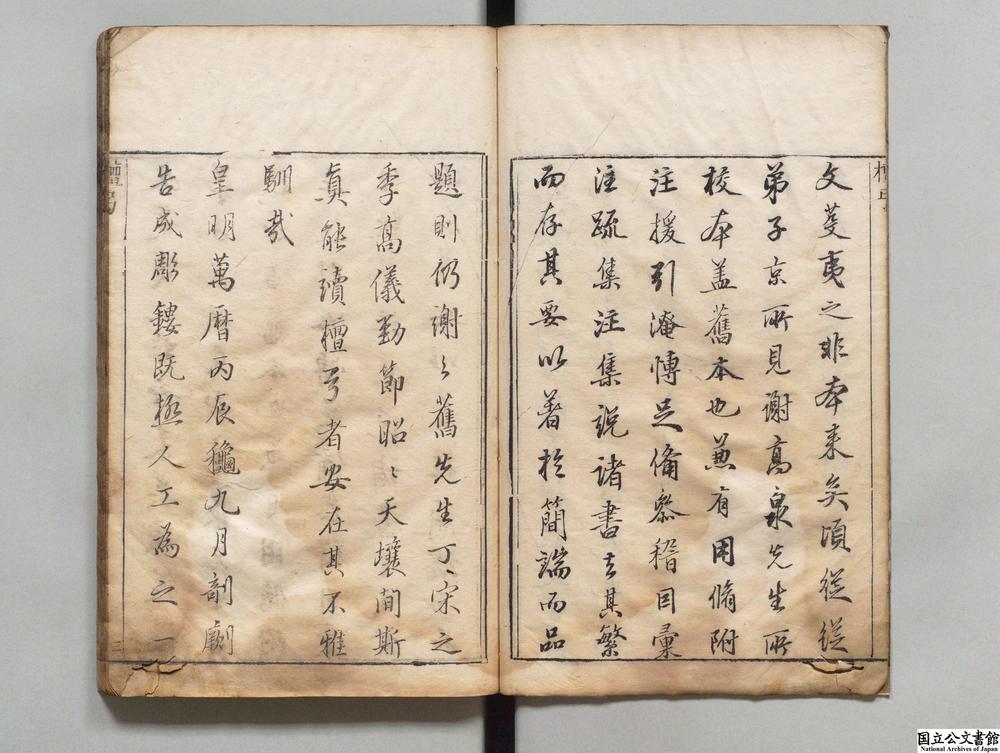 文芟夷之非本来矣頃從從
弟子京所見謝高泉先生所
校本盖舊本也兼有用脩附
注援引淹愽足俻叅稽因彙
注疏集注集説諸書去其繁
而存其要以著於簡端而品
題則仍謝之舊先生丁丁宋之
季高儀勁節昭昭天壤間斯
真能續檀弓者安在其不雅
馴哉
皇明萬曆丙辰龝九月剞劂
告成彫鏤既極人工為之一
檀弓
三
国立公文書館
National Archives of Japan